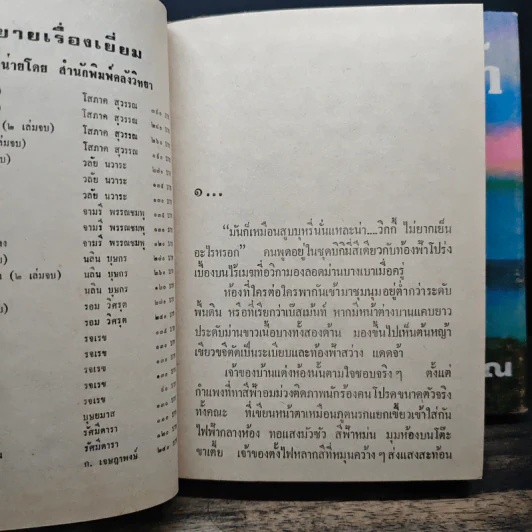 ยายเรื่องเยี่ยม
น่ายโดย สำนักพิมพ์คลังวิทยา
โสภาค สุวรรณ
(๒ เล่มจบ) โสภาค สุวรรณ
เล่มจบ) โสภาค สุวรรณ
โสภาค สุวรรณ
วลัย นวาระ
วลัย นวาระ
วลัย นวาระ
จามรี พรรณชมพู
จามรี พรรณชมพู
นลิน บุษกร
(๒ เล่มจบ) นลิน บุษกร
นลิน บุษกร
รอม วิศรุต
รอม วิศรุต
รจเรข
รจเรข
รจเรข
รจเรข
บุษยมาส
รัศมีดารา
รัศมีดารา
ก. เจษฎาพงษ์
๑...
"มันก็เหมือนสูบบุหรี่นั่นแหละน่า....วิกกี้ ไม่ยากเย็น
อะไรหรอก" คนพูดอยู่ในชุดบิกินี่สีเดียวกับท้องฟ้าโปร่ง
เบื้องบนไร้เมฆที่อวิกามองลอดม่านบางเบาเมื่อครู่
ห้องที่ใครต่อใครพากันเข้ามาชุมนุมอยู่ต่ำกว่าระดับ
พื้นดิน หรือที่เรียกว่าเบ๊สเม้นท์ หากมีหน้าต่างบานแคบยาว
ประดับม่านขาวเนื้อบางทั้งสองด้าน มองขึ้นไปเห็นต้นหญ้า
เขียวขจีตัดเป็นระเบียบและท้องฟ้าสว่าง แดดจ้า
เจ้าของบ้านแต่งห้องนั้นตามใจชอบจริง ๆ ตั้งแต่
กำแพงที่ทาสีฟ้าอมม่วงติดภาพนักร้องคนโปรดขนาดตัวจริง
ทั้งคณะ ที่เขียนหน้าตาเหมือนภูตนรกแยกเขี้ยวเข้าใส่กัน
ไฟฟ้ากลางห้อง ทอแสงมัวซัว สีฟ้าหม่น มุมห้องบนโต๊ะ
ขาเตี้ย เจ้าของตั้งไฟหลากสีที่หมุนคว้าง ๆ ส่งแสงสะท้อน
ณ